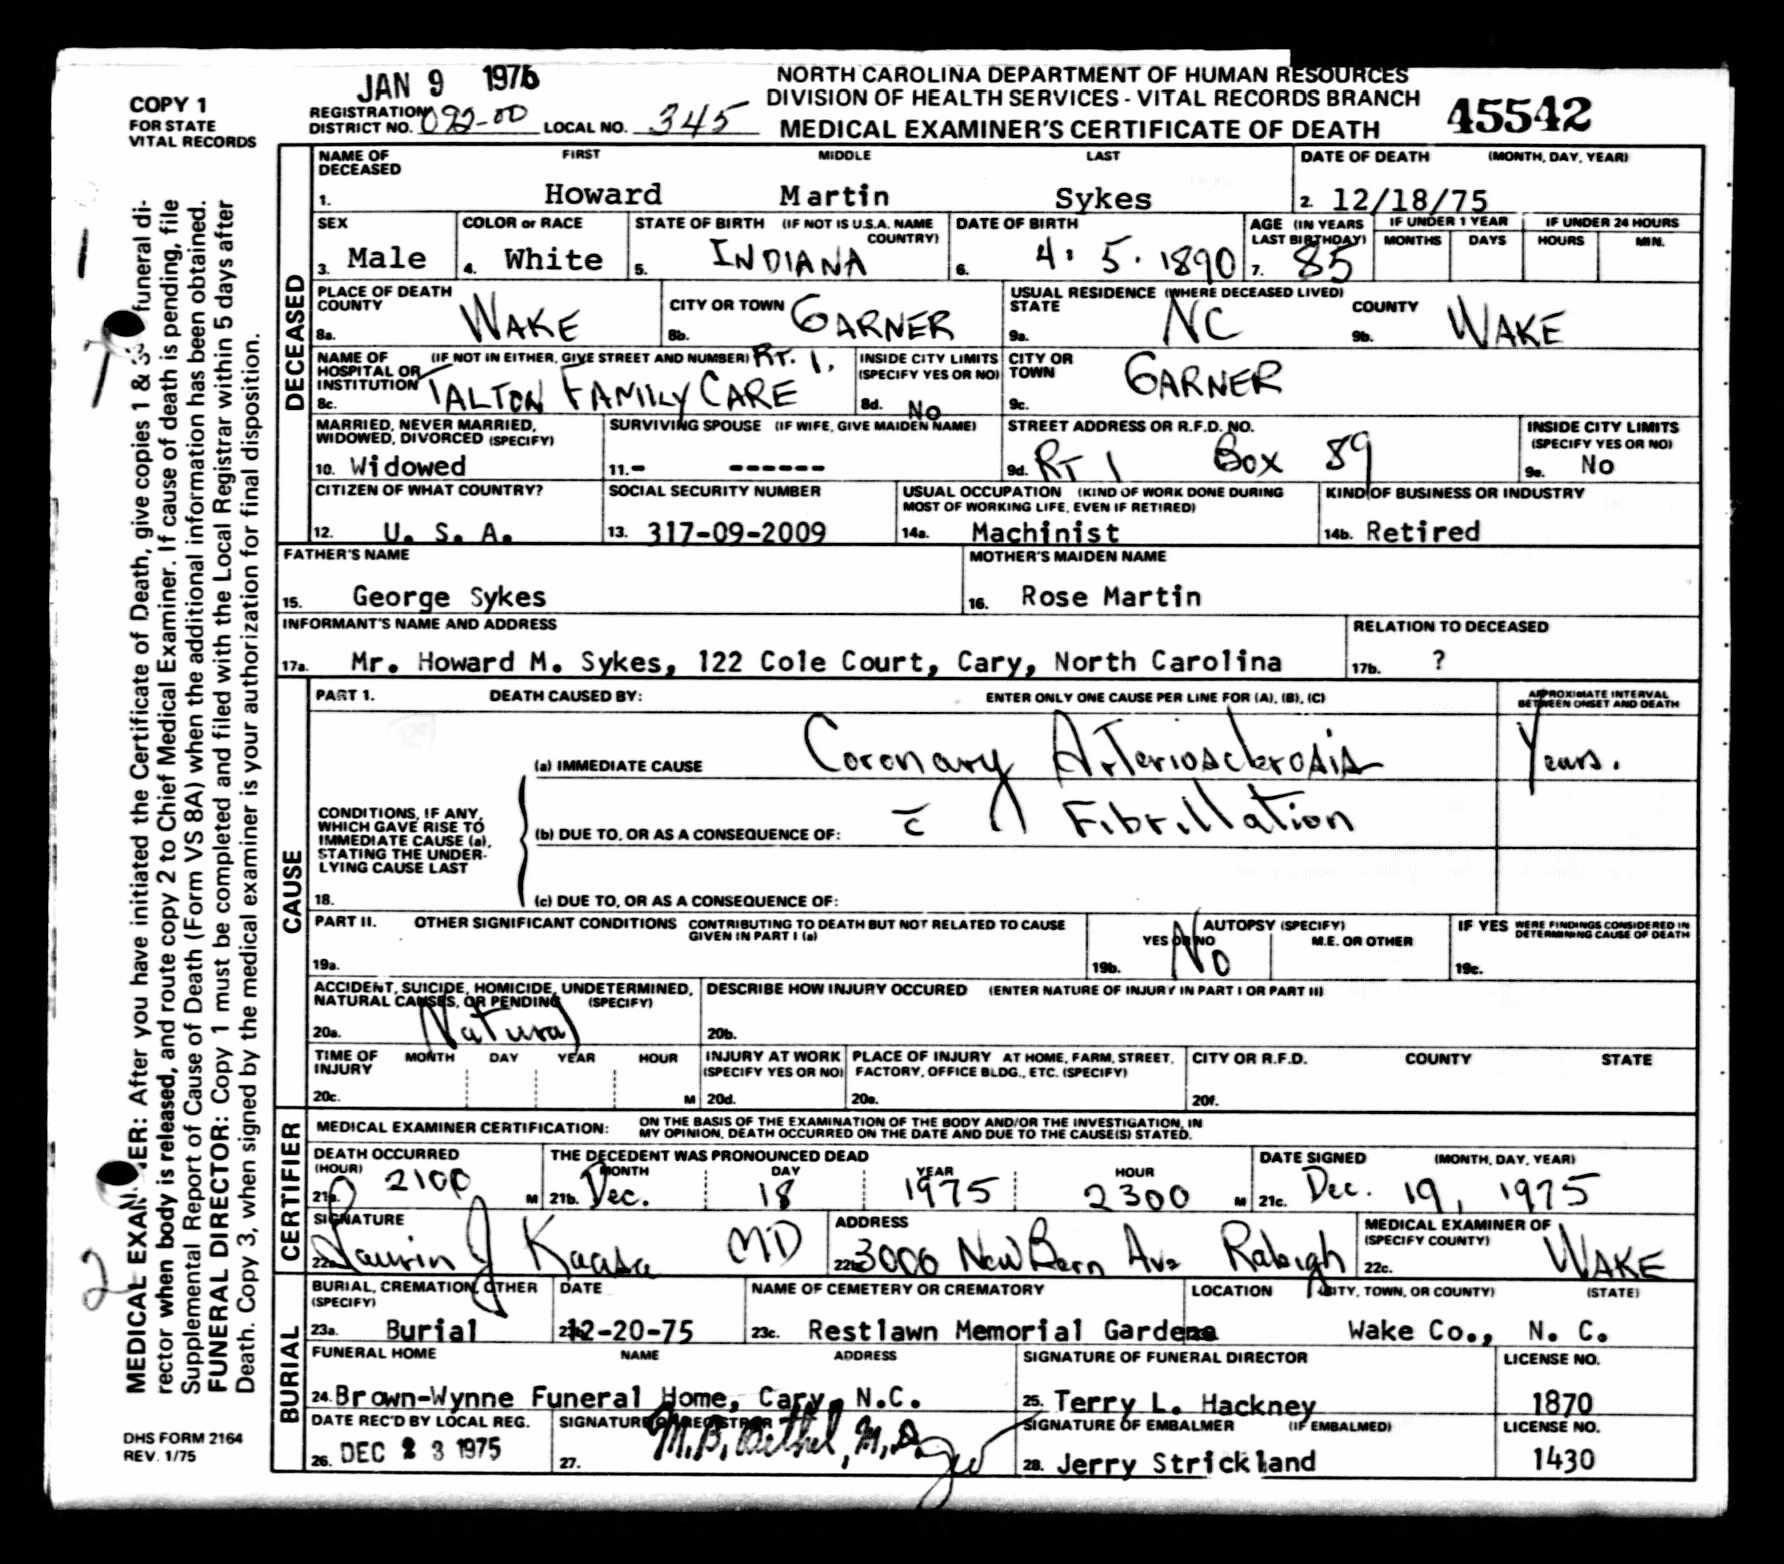 JAN 9 1976
COPY 1
FOR STATE
VITAL RECORDS
REGISTRATION
DISTRICT NO. 092-00 LOCAL NO. 345
NORTH CAROLINA DEPARTMENT OF HUMAN RESOURCES
DIVISION OF HEALTH SERVICES - VITAL RECORDS BRANCH
MEDICAL EXAMINER'S CERTIFICATE OF DEATH
45542
DECEASED
NAME OF DECEASED FIRST MIDDLE LAST
1. Howard Martin Sykes
DATE OF DEATH (MONTH, DAY, YEAR)
2. 12/18/75
SEX
3. Male
COLOR or RACE
4. White
STATE OF BIRTH (IF NOT IS U.S.A. NAME COUNTRY)
5. INDIANA
DATE OF BIRTH
6. 4. 5. 1890
AGE (IN YEARS LAST BIRTHDAY)
7. 85
IF UNDER 1 YEAR
MONTHS DAYS
IF UNDER 24 HOURS
HOURS MIN.
PLACE OF DEATH
COUNTY
8a. WAKE
CITY OR TOWN
8b. GARNER
USUAL RESIDENCE (WHERE DECEASED LIVED)
STATE
9a. NC
COUNTY
9b. WAKE
NAME OF HOSPITAL OR INSTITUTION (IF NOT IN EITHER, GIVE STREET AND NUMBER) RT. 1,
8c. TALTON FAMILY CARE
INSIDE CITY LIMITS
(SPECIFY YES OR NO)
8d. No
CITY OR TOWN
9c. GARNER
MARRIED, NEVER MARRIED,
WIDOWED, DIVORCED (SPECIFY)
10. Widowed
SURVIVING SPOUSE (IF WIFE, GIVE MAIDEN NAME)
11.- ------
STREET ADDRESS OR R.F.D. NO.
9d. RT 1 Box 89
INSIDE CITY LIMITS
(SPECIFY YES OR NO)
9e. No
CITIZEN OF WHAT COUNTRY?
12. U. S. A.
SOCIAL SECURITY NUMBER
13. 317-09-2009
USUAL OCCUPATION (KIND OF WORK DONE DURING
MOST OF WORKING LIFE, EVEN IF RETIRED)
14a. Machinist
KIND OF BUSINESS OR INDUSTRY
14b. Retired
FATHER'S NAME
15. George Sykes
MOTHER'S MAIDEN NAME
16. Rose Martin
INFORMANT'S NAME AND ADDRESS
17a. Mr. Howard M. Sykes, 122 Cole Court, Cary, North Carolina
RELATION TO DECEASED
17b. ?
CAUSE
PART 1. DEATH CAUSED BY: ENTER ONLY ONE CAUSE PER LINE FOR (A), (B), (C)
APPROXIMATE INTERVAL
BETWEEN ONSET AND DEATH
(a) IMMEDIATE CAUSE Coronary Arteriosclerosis Years.
CONDITIONS, IF ANY,
WHICH GAVE RISE TO
IMMEDIATE CAUSE (a),
STATING THE UNDER-
LYING CAUSE LAST
18.
(b) DUE TO, OR AS A CONSEQUENCE OF: c̄ Fibrillation
(c) DUE TO, OR AS A CONSEQUENCE OF:
PART II. OTHER SIGNIFICANT CONDITIONS CONTRIBUTING TO DEATH BUT NOT RELATED TO CAUSE
GIVEN IN PART I (a)
19a.
AUTOPSY (SPECIFY)
YES OR NO M.E. OR OTHER
19b. No
IF YES WERE FINDINGS CONSIDERED IN
DETERMINING CAUSE OF DEATH
19c.
ACCIDENT, SUICIDE, HOMICIDE, UNDETERMINED,
NATURAL CAUSES, OR PENDING (SPECIFY)
20a. Natural
DESCRIBE HOW INJURY OCCURED (ENTER NATURE OF INJURY IN PART I OR PART II)
20b.
TIME OF INJURY MONTH DAY YEAR HOUR
20c. M
INJURY AT WORK
(SPECIFY YES OR NO)
20d.
PLACE OF INJURY AT HOME, FARM, STREET,
FACTORY, OFFICE BLDG., ETC. (SPECIFY)
20e.
CITY OR R.F.D. COUNTY STATE
20f.
CERTIFIER
MEDICAL EXAMINER CERTIFICATION: ON THE BASIS OF THE EXAMINATION OF THE BODY AND/OR THE INVESTIGATION, IN
MY OPINION, DEATH OCCURRED ON THE DATE AND DUE TO THE CAUSE(S) STATED.
DEATH OCCURRED
(HOUR)
21a. 2100 M
THE DECEDENT WAS PRONOUNCED DEAD
MONTH DAY YEAR HOUR
21b. Dec. 18 1975 2300 M
DATE SIGNED (MONTH, DAY, YEAR)
21c. Dec. 19, 1975
SIGNATURE
22a. Laurin J Kaasa MD
ADDRESS
22b. 3000 New Bern Ave Raleigh
MEDICAL EXAMINER OF
(SPECIFY COUNTY)
22c. WAKE
BURIAL
BURIAL, CREMATION, OTHER
(SPECIFY)
23a. Burial
DATE
12-20-75
NAME OF CEMETERY OR CREMATORY
23c. Restlawn Memorial Gardens
LOCATION (CITY, TOWN, OR COUNTY) (STATE)
Wake Co., N. C.
FUNERAL HOME NAME ADDRESS
24. Brown-Wynne Funeral Home, Cary, N.C.
SIGNATURE OF FUNERAL DIRECTOR
25. Terry L. Hackney
LICENSE NO.
1870
DATE REC'D BY LOCAL REG.
26. DEC 23 1975
SIGNATURE OF REGISTRAR
27. M.B. Bethel, M.D.
SIGNATURE OF EMBALMER (IF EMBALMED)
28. Jerry Strickland
LICENSE NO.
1430
MEDICAL EXAMINER: After you have initiated the Certificate of Death, give copies 1 & 3 funeral di-
rector when body is released, and route copy 2 to Chief Medical Examiner. If cause of death is pending, file
Supplemental Report of Cause of Death (Form VS 8A) when the additional information has been obtained.
FUNERAL DIRECTOR: Copy 1 must be completed and filed with the Local Registrar within 5 days after
Death. Copy 3, when signed by the medical examiner is your authorization for final disposition.
2
DHS FORM 2164
REV. 1/75